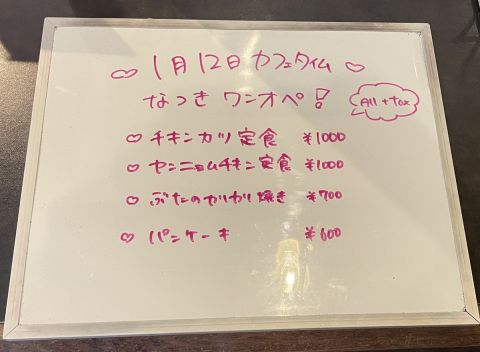 ♡ 1月12日 カフェタイム ♡
なつき ワンオペ!
All + tax
♡ チキンカツ定食 ¥1000
♡ ヤンニョムチキン定食 ¥1000
♡ ぶたのカリカリ焼き ¥700
♡ パンケーキ ¥600